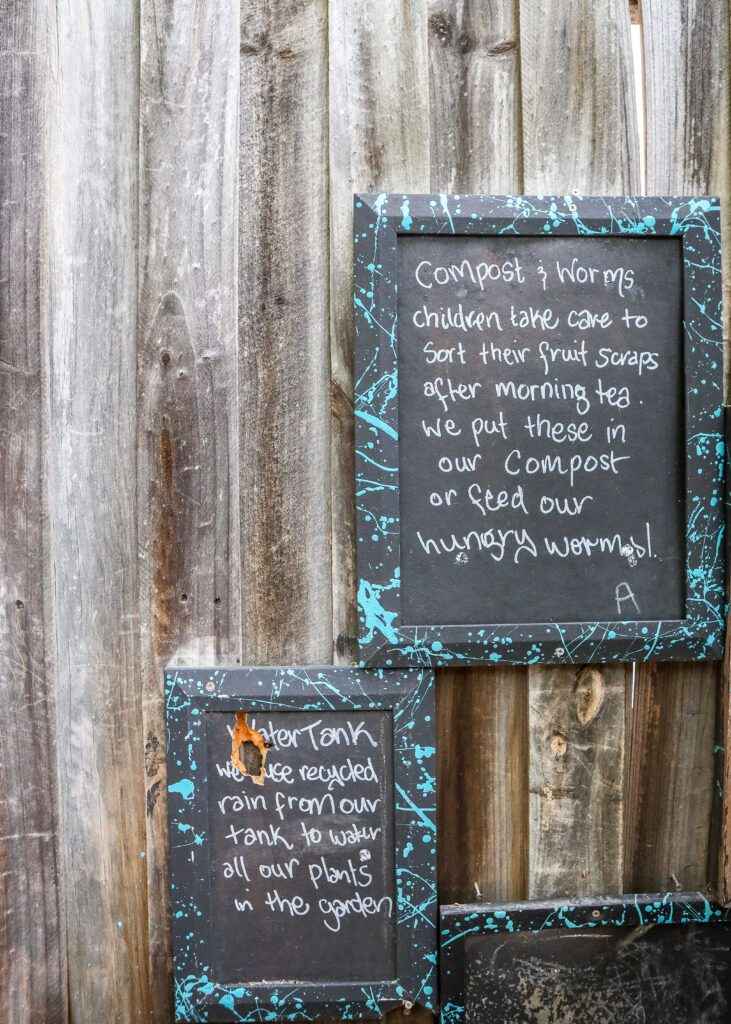 Compost & Worms
children take care to
Sort their fruit scraps
after morning tea.
we put these in
our Compost
or feed our
hungry worms!.
A
Water Tank
we use recycled
rain from our
tank to water
all our plants
in the garden